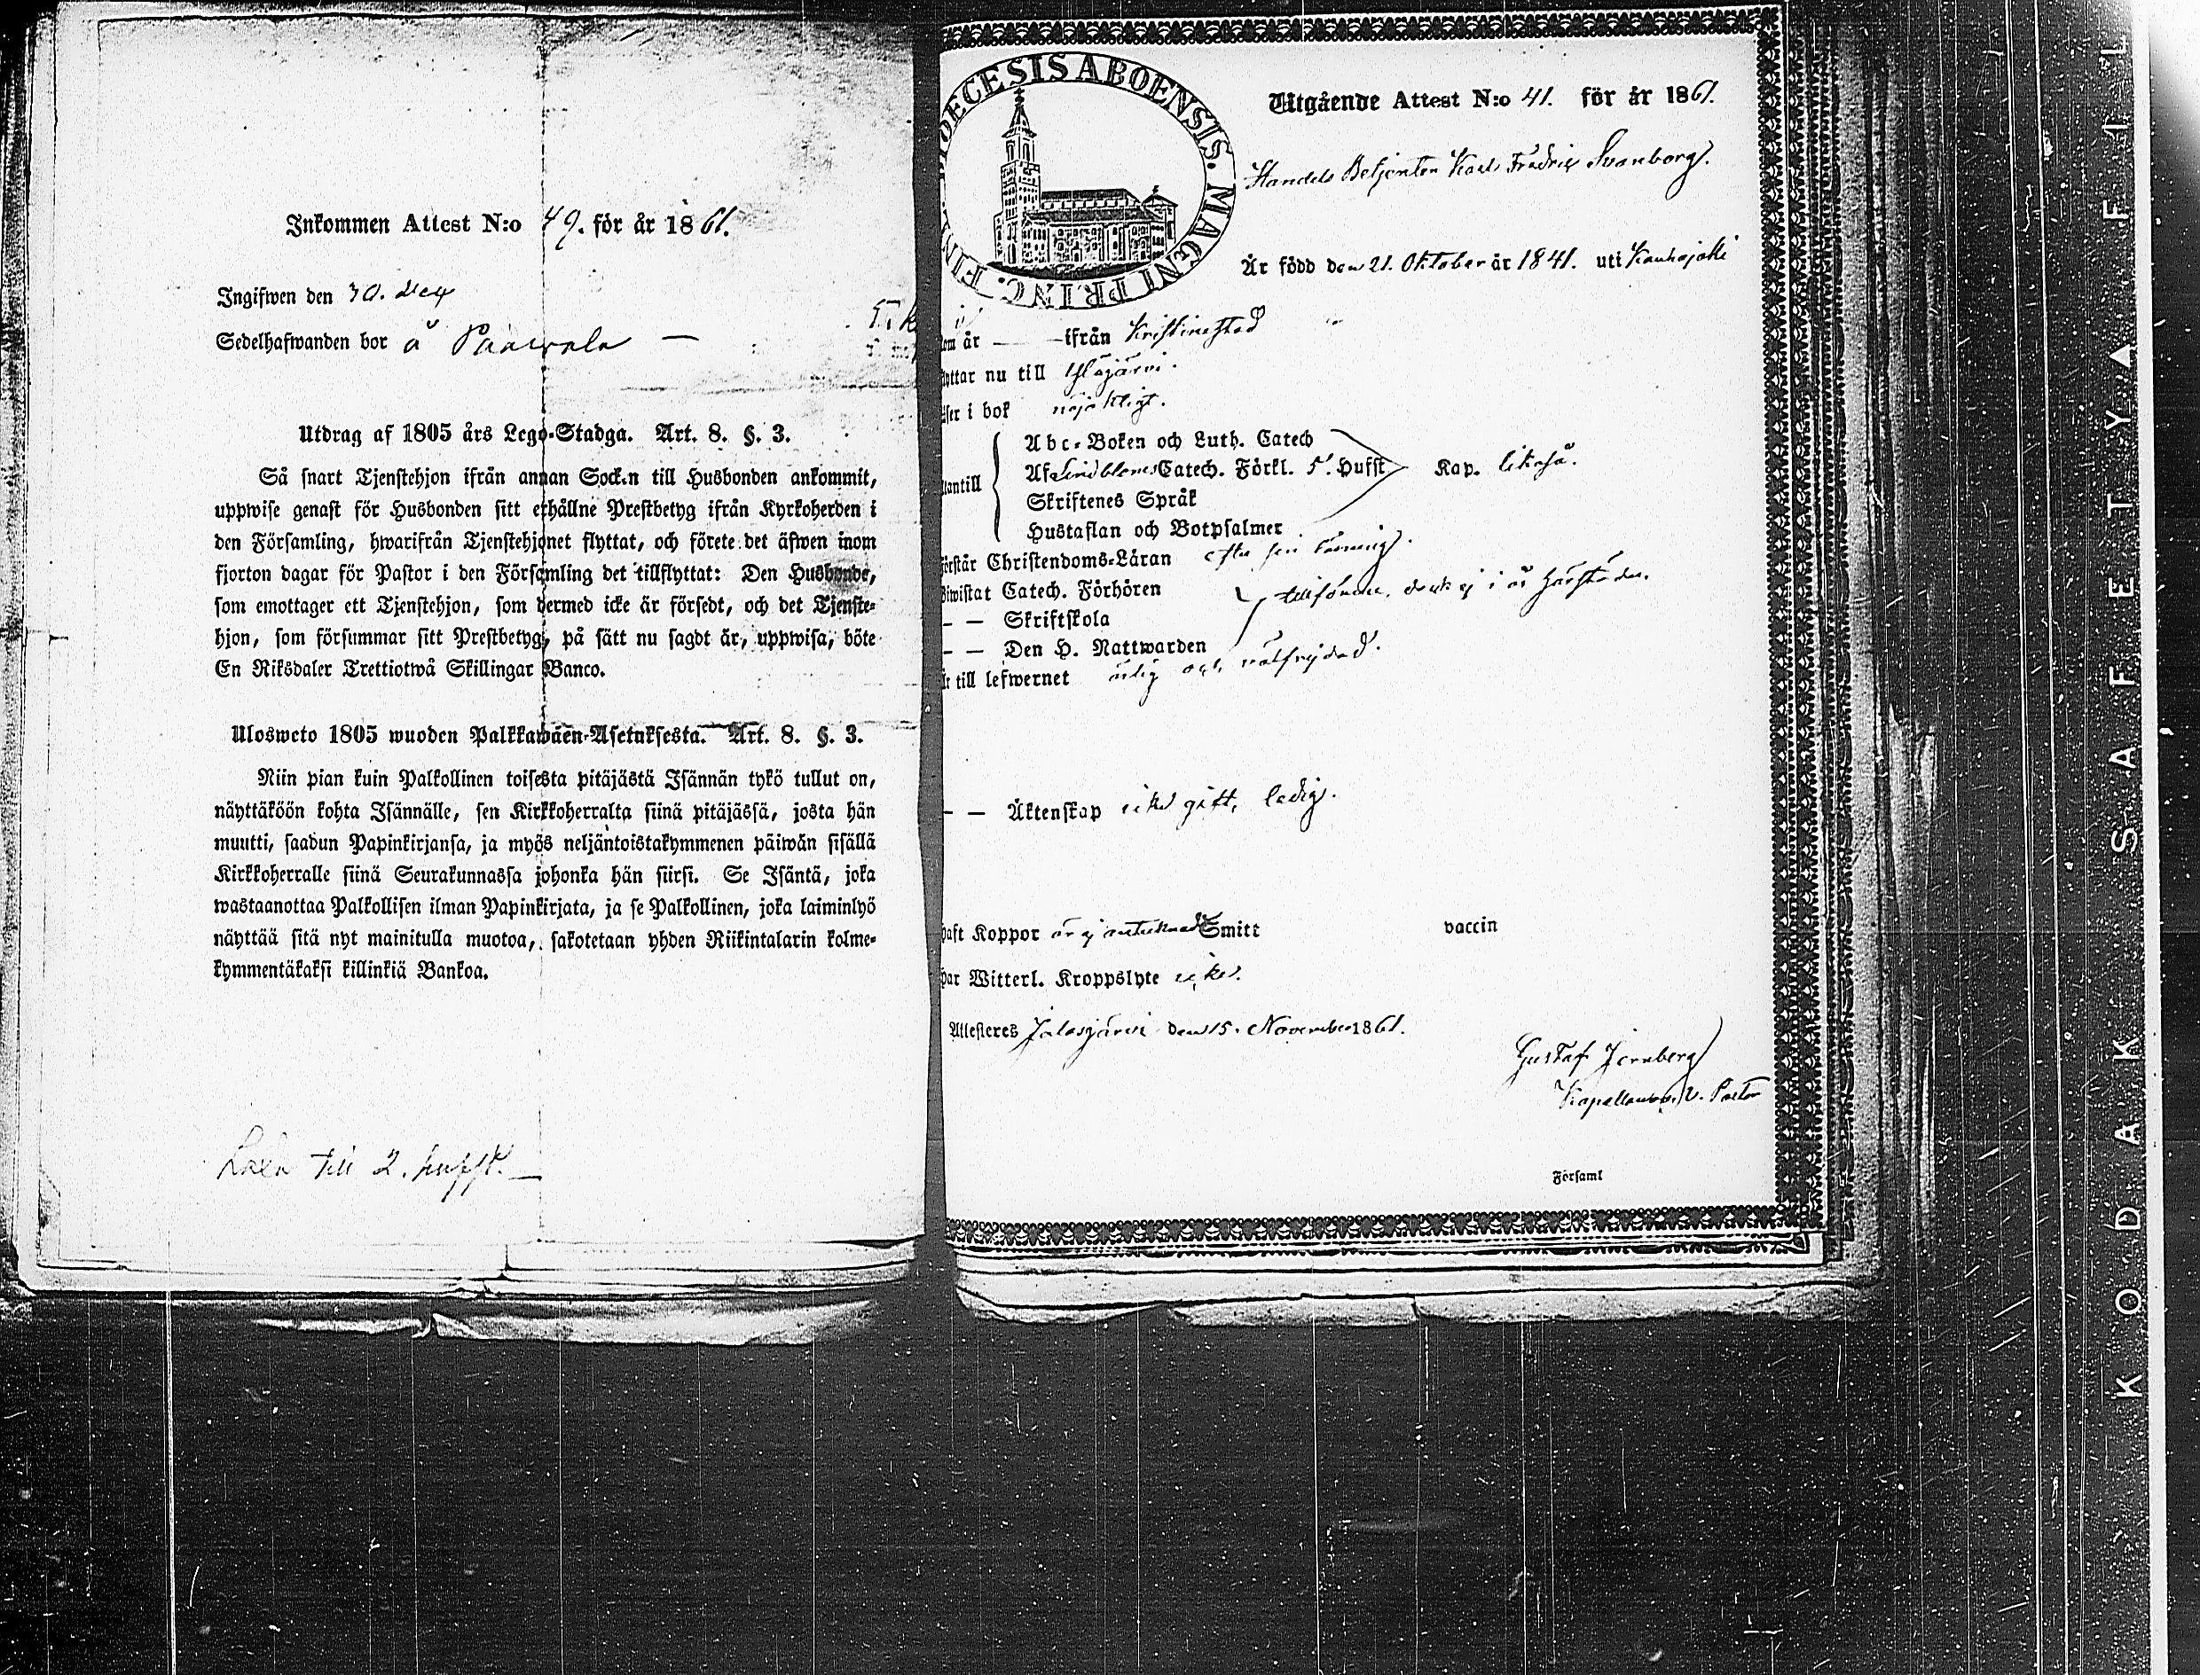 Inkommen Attest N:o 49. för år 1861.
Ingifwen den 30. Dec
Sedelhafwanden bor å
Utdrag af 1805 års Lego-Stadga. Art. 8. §. 3.
Så snart Tjenstehjon ifrån annan Sock.n till Husbonden ankommit,
uppwise genast för Husbonden sitt erhållne Prestbetyg ifrån Kyrkoherden i
den Församling, hwarifrån Tjenstehjonet flyttat, och förete det äfwen inom
fjorton dagar för Pastor i den Församling det tillflyttat: Den Husbonde,
som emottager ett Tjenstehjon, som dermed icke är försedt, och det Tjenste-
hjon, som försummar sitt Prestbetyg, på sätt nu sagdt är, uppwisa, böte
En Riksdaler Trettiotwå Skillingar Banco.
Ulosweto 1805 wuoden Palkkawäen-Asetuksesta. Art. 8. §. 3.
Niin pian kuin Palkollinen toisesta pitäjästä Isännän tykö tullut on,
näyttäköön kohta Isännälle, sen Kirkkoherralta siinä pitäjässä, josta hän
muutti, saadun Papinkirjansa, ja myös neljäntoistakymmenen päiwän sisällä
Kirkkoherralle siinä Seurakunnassa johonka hän siirsi. Se Isäntä, joka
wastaanottaa Palkollisen ilman Papinkirjata, ja se Palkollinen, joka laiminlyö
näyttää sitä nyt mainitulla muotoa, sakotetaan yhden Riikintalarin kolme-
kymmentäkaksi killinkiä Bankoa.
till 2.
DIOECESIS ABOENSIS. MAGNI PRINC. FINL
Utgående Attest N:o 41. för år 1861.
Handels Betjenten Karl Fredric Svanborg.
Är född den 21. Oktober år 1841. uti Kauhajoki
om år — ifrån Kristinestad
yttar nu till Ylöjärvi.
ser i bok nöjaktigt.
antill
Abc-Boken och Luth. Catech
Af Lindbloms Catech. Förkl. 5. Hufst Kap. likaså.
Skriftenes Språk
Hustaflan och Botpsalmer
örstår Christendoms-Läran efter sin
biwistat Catech. Förhören
— — Skriftskola
tillförene, dock ej i år härstädes.
— — Den H. Nattwarden
är till lefwernet ärlig och välfrejdad.
— — Äktenskap icke gift, ledig.
haft Koppor är ej antecknad Smitt vaccin
har Witterl. Kroppslyte icke.
Attesteres Jalasjärvi den 15. November 1861.
Gustaf Jernberg
Kapellan o. V. Pastor
Församl
KODAK SAFETY ▲ F